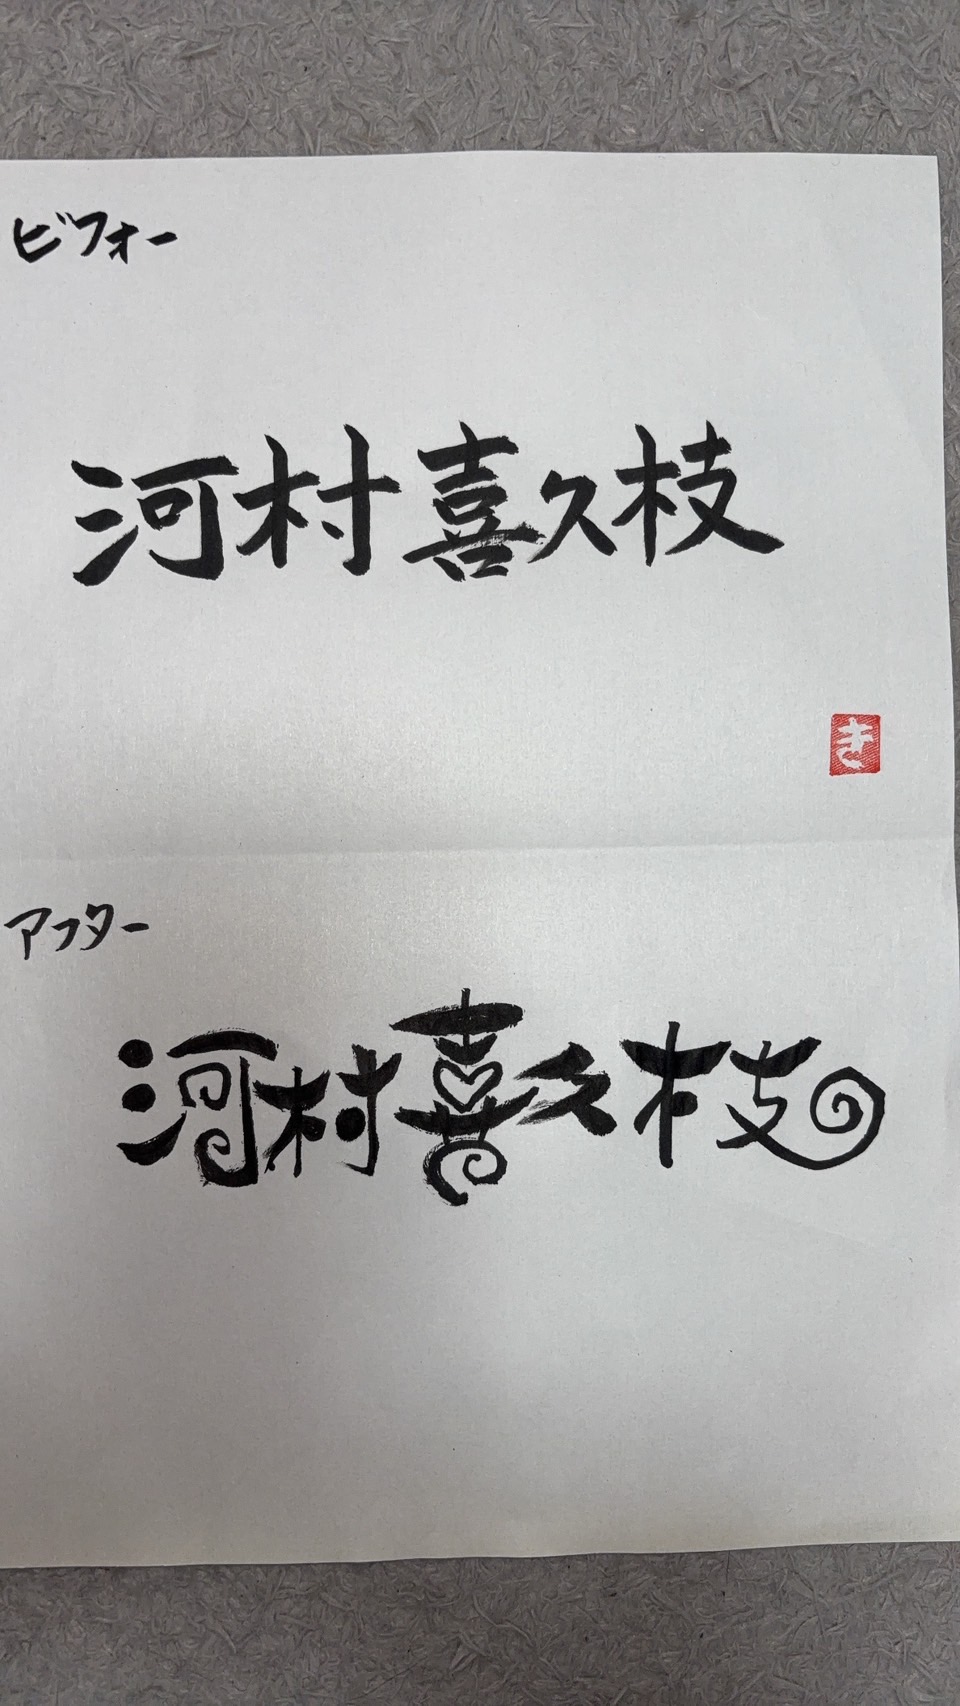 ビフォー
河村喜久枝
き
アフター
河村喜久枝